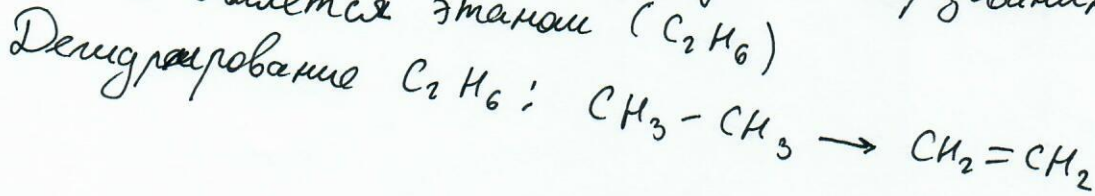 этаном (C₂H₆)
Дегидрирование C₂H₆: CH₃ – CH₃ → CH₂ = CH₂